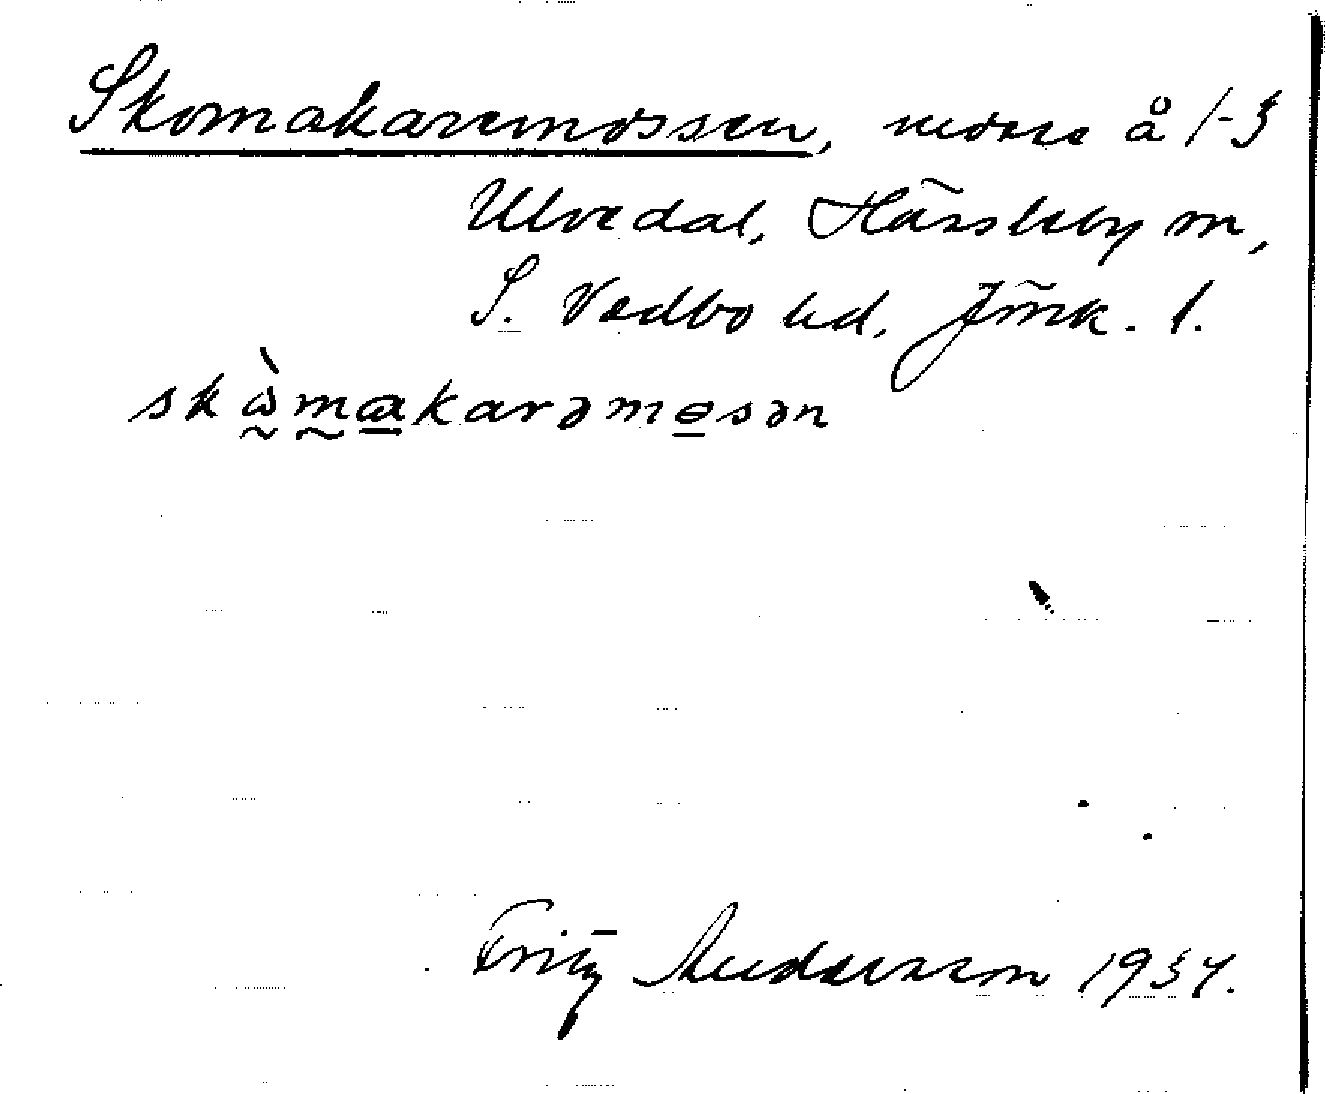 Skomakaremossen, mosse å 1-3
Ulvedal, Hässleby sn,
S. Vedbo hd, Jönk. l.
skὼmakarəmosən
Fritz Andersson 1934.